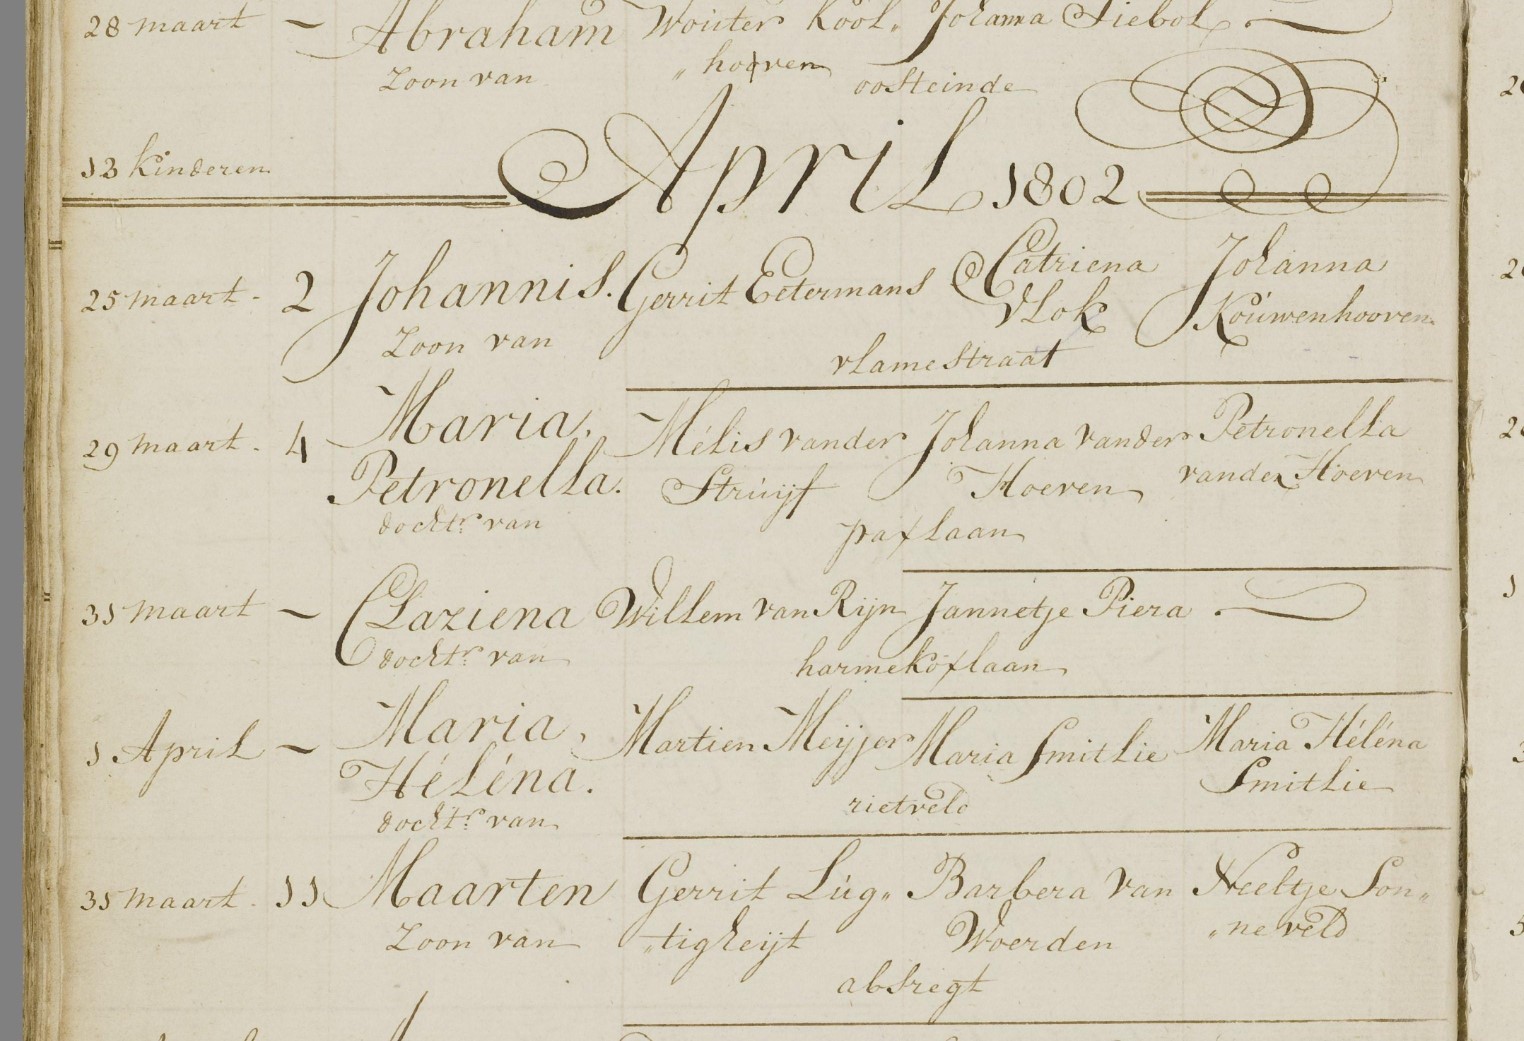 28 maart ~ Abraham Wouter Kool„ Johanna Siebol
Zoon van „hooven oosteinde
13 kinderen April 1802
25 maart - 2 Johannis. Gerrit Eetermans Catriena Johanna
Zoon van Vlok Kouwenhooven
vlamestraat
29 maart - 4 Maria, Mélis vander Johanna vander Petronella
Petronella. Struijf Hoeven vander Hoeven
docht.r van paxlaan
31 maart ~ Claziena Willem van Rijn Jannetje Piera
docht.r van harmekoxlaan
1 April ~ Maria, Martien Meyjer Maria Smitlie Maria Héléna
Héléna. Smitlie
docht.r van rietveld
31 maart - 11 Maarten Gerrit Lúg„ Barbera van Neeltje Son„
Zoon van „tigheijt Woerden „neveld
absregt